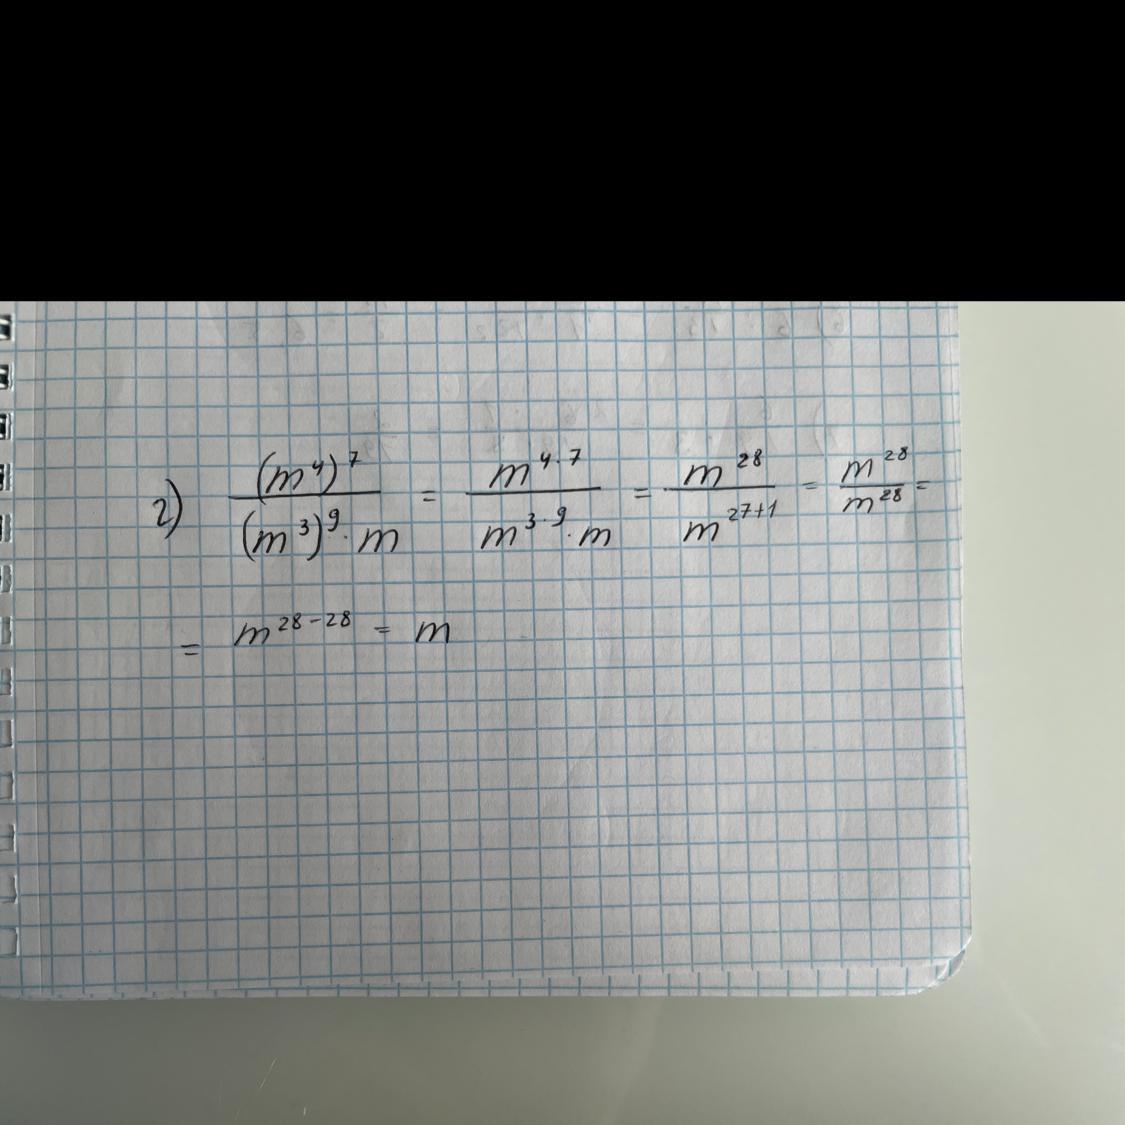 2) (m⁴)⁷ / (m³)⁹ · m = m⁴·⁷ / m³·⁹ · m = m²⁸ / m²⁷⁺¹ = m²⁸ / m²⁸ =
= m²⁸⁻²⁸ = m